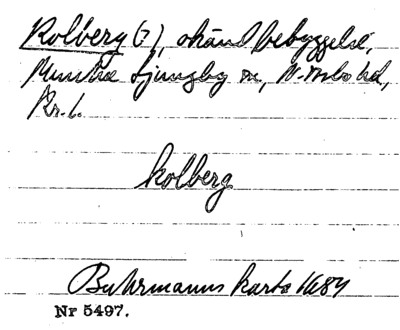 Kolberg (?), okänd bebyggelse,
Munka Ljungby sn, N. Åsbo hd,
Kr. l.
Kolberg
Buhrmanns karta 1684
Nr 5497.